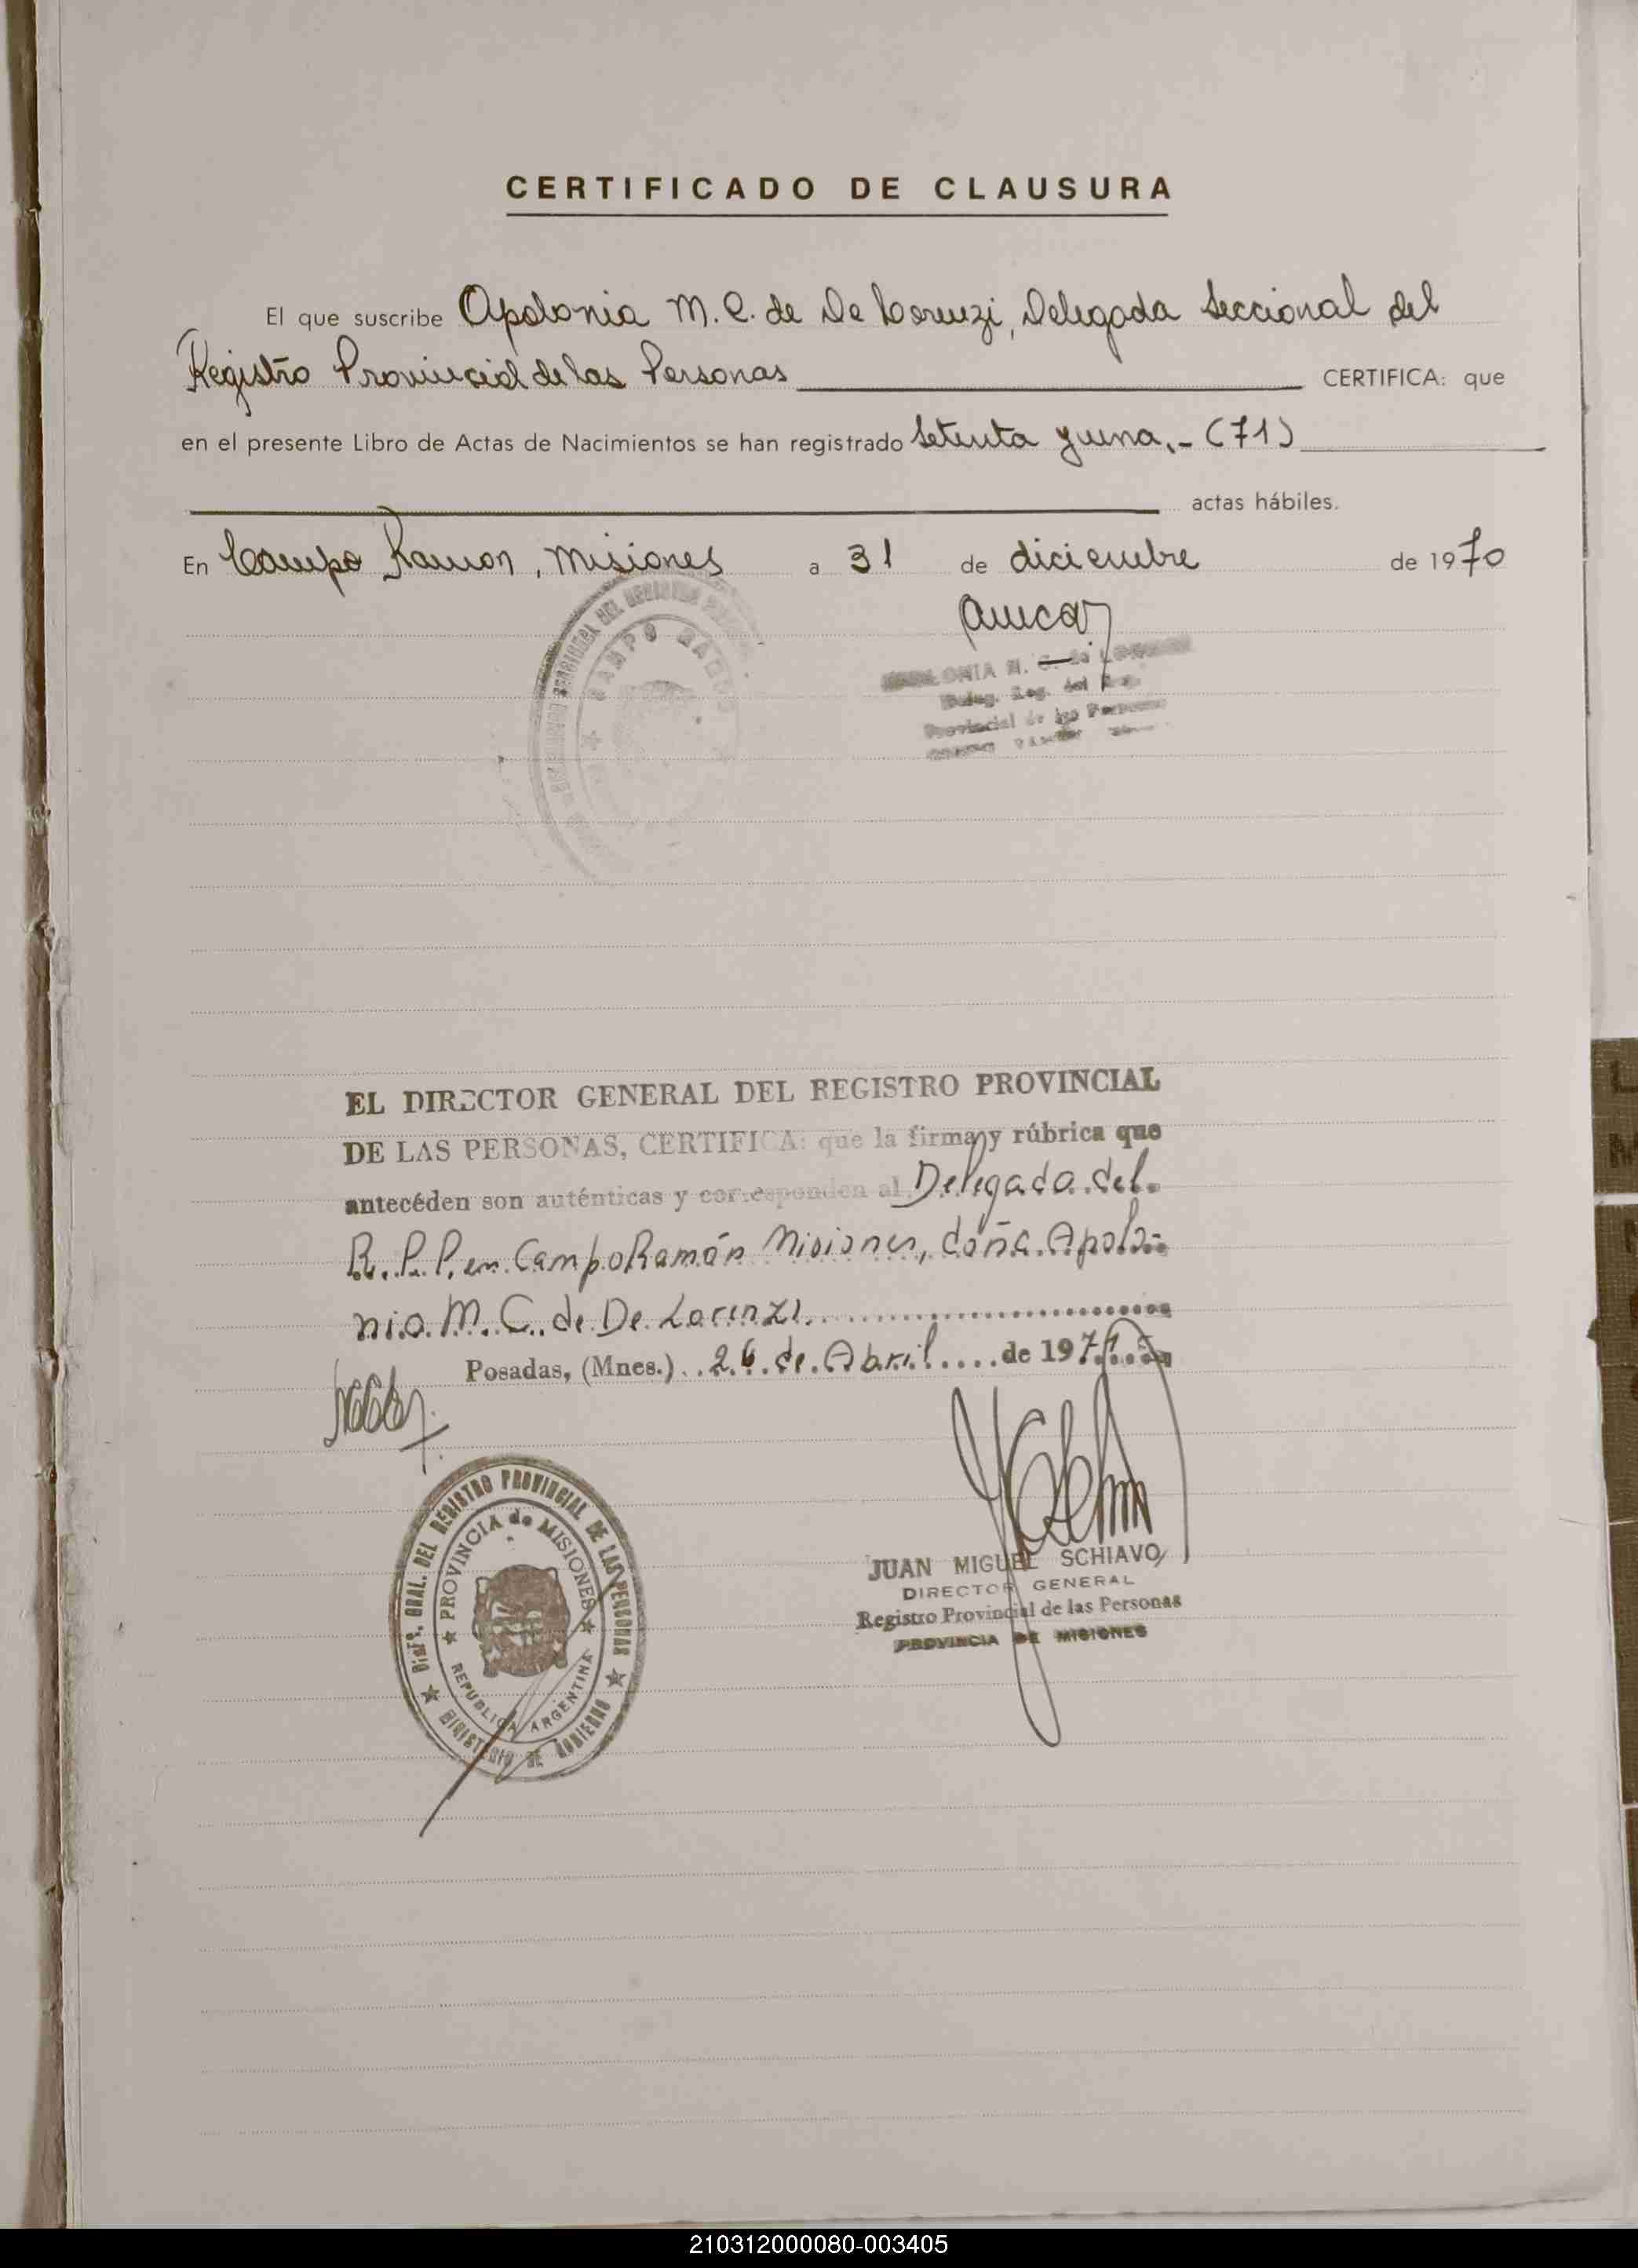 CERTIFICADO DE CLAUSURA
El que suscribe Apolonia M. C. de De Lorenzi, Delegada Seccional del
Registro Provincial de las Personas CERTIFICA: que
en el presente Libro de Actas de Nacimientos se han registrado Setenta y una.- (71)
actas hábiles.
En Campo Ramon, Misiones a 31 de diciembre de 1970
CAMPO RAMON
Provincial de las Personas
EL DIRECTOR GENERAL DEL REGISTRO PROVINCIAL
DE LAS PERSONAS, CERTIFICA: que la firma y rúbrica que
antecéden son auténticas y corresponden al Delegada del
R. P. P. en Campo Ramón Misiones, doña Apolo-
nia M. C. de De Lorenzi
Posadas, (Mnes.) 26 de Abril de 1971
DIREC. GRAL. DEL REGISTRO PROVINCIAL DE LAS PERSONAS
PROVINCIA de MISIONES
REPUBLICA ARGENTINA
MINISTERIO DE GOBIERNO
JUAN MIGUEL SCHIAVO
DIRECTOR GENERAL
Registro Provincial de las Personas
PROVINCIA DE MISIONES
210312000080-003405